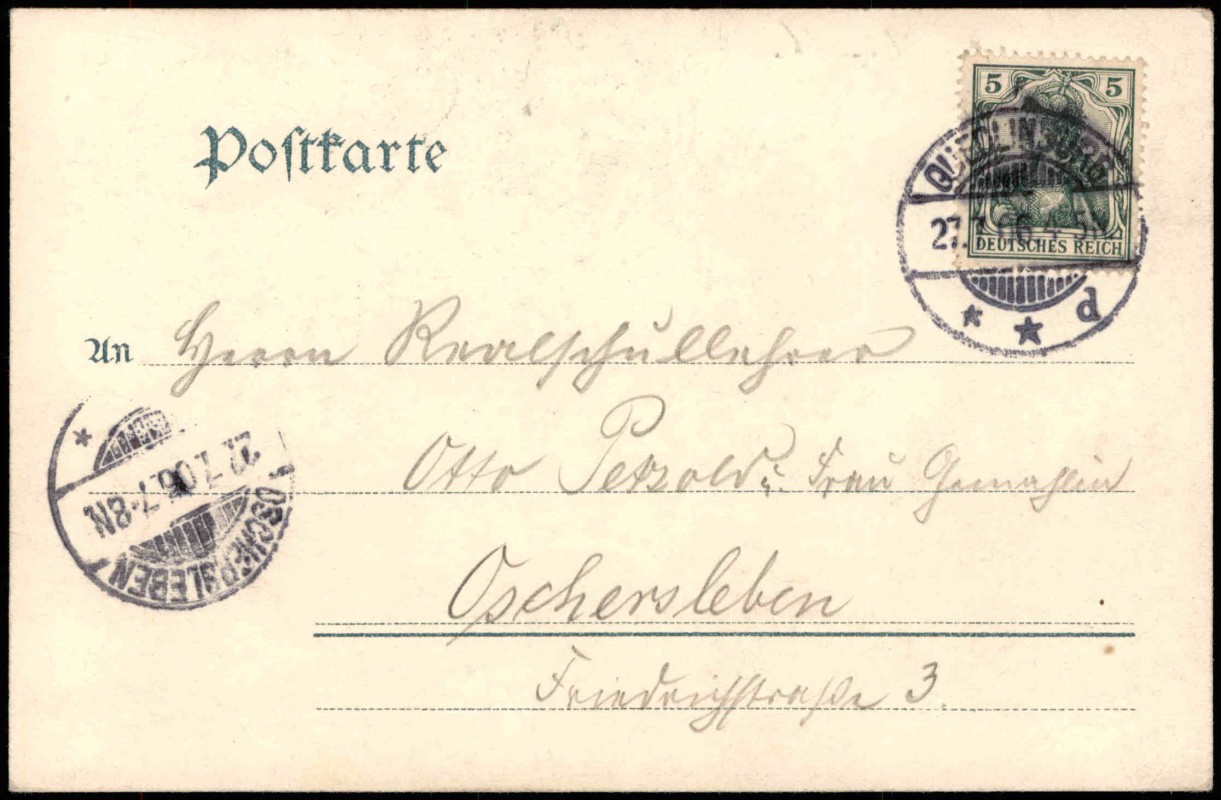 5 5
DEUTSCHES REICH
QUEDLINBURG
27.7.06.4-5N.
* * d
Postkarte
An Herrn Realschullehrer
Otto Petzold u. Frau Gemahlin
Oschersleben
Friedrichstraße 3.
* 27.7.06.7-8N.
OSCHERSLEBEN